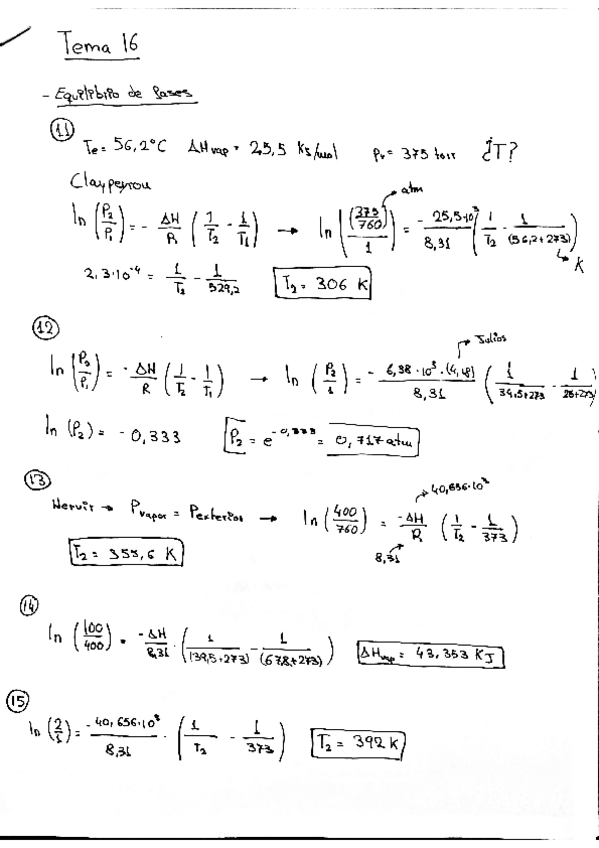 Tema 16
- Equilibrio de fases
(11)
Te= 56,2°C ΔHvap = 25,5 KJ/mol Pv= 375 torr ¿T?
Claypeyrou
ln (P2/P1) = - ΔH/R (1/T2 - 1/T1) → ln ((375/760)/1) = - 25,5·10³/8,31 (1/T2 - 1/(56,2+273))
atm
K
2,3·10⁻⁴ = 1/T2 - 1/329,2 T2 = 306 K
(12)
Julios
ln (P2/P1) = - ΔH/R (1/T2 - 1/T1) → ln (P2/1) = - 6,38·10³·(4,18)/8,31 (1/34,5+273 - 1/26+273)
ln (P2) = - 0,333 P2 = e^-0,333 = 0,717 atm
(13)
40,656·10³
Hervir → Pvapor = Pexterior → ln (400/760) = -ΔH/R (1/T2 - 1/373)
8,31
T2 = 355,6 K
(14)
ln (100/400) = -ΔH/8,31 · (1/(39,5+273) - 1/(67,8+273)) ΔHvap = 43,353 KJ
(15)
ln (2/1) = -40,656·10³/8,31 · (1/T2 - 1/373) T2 = 392 K